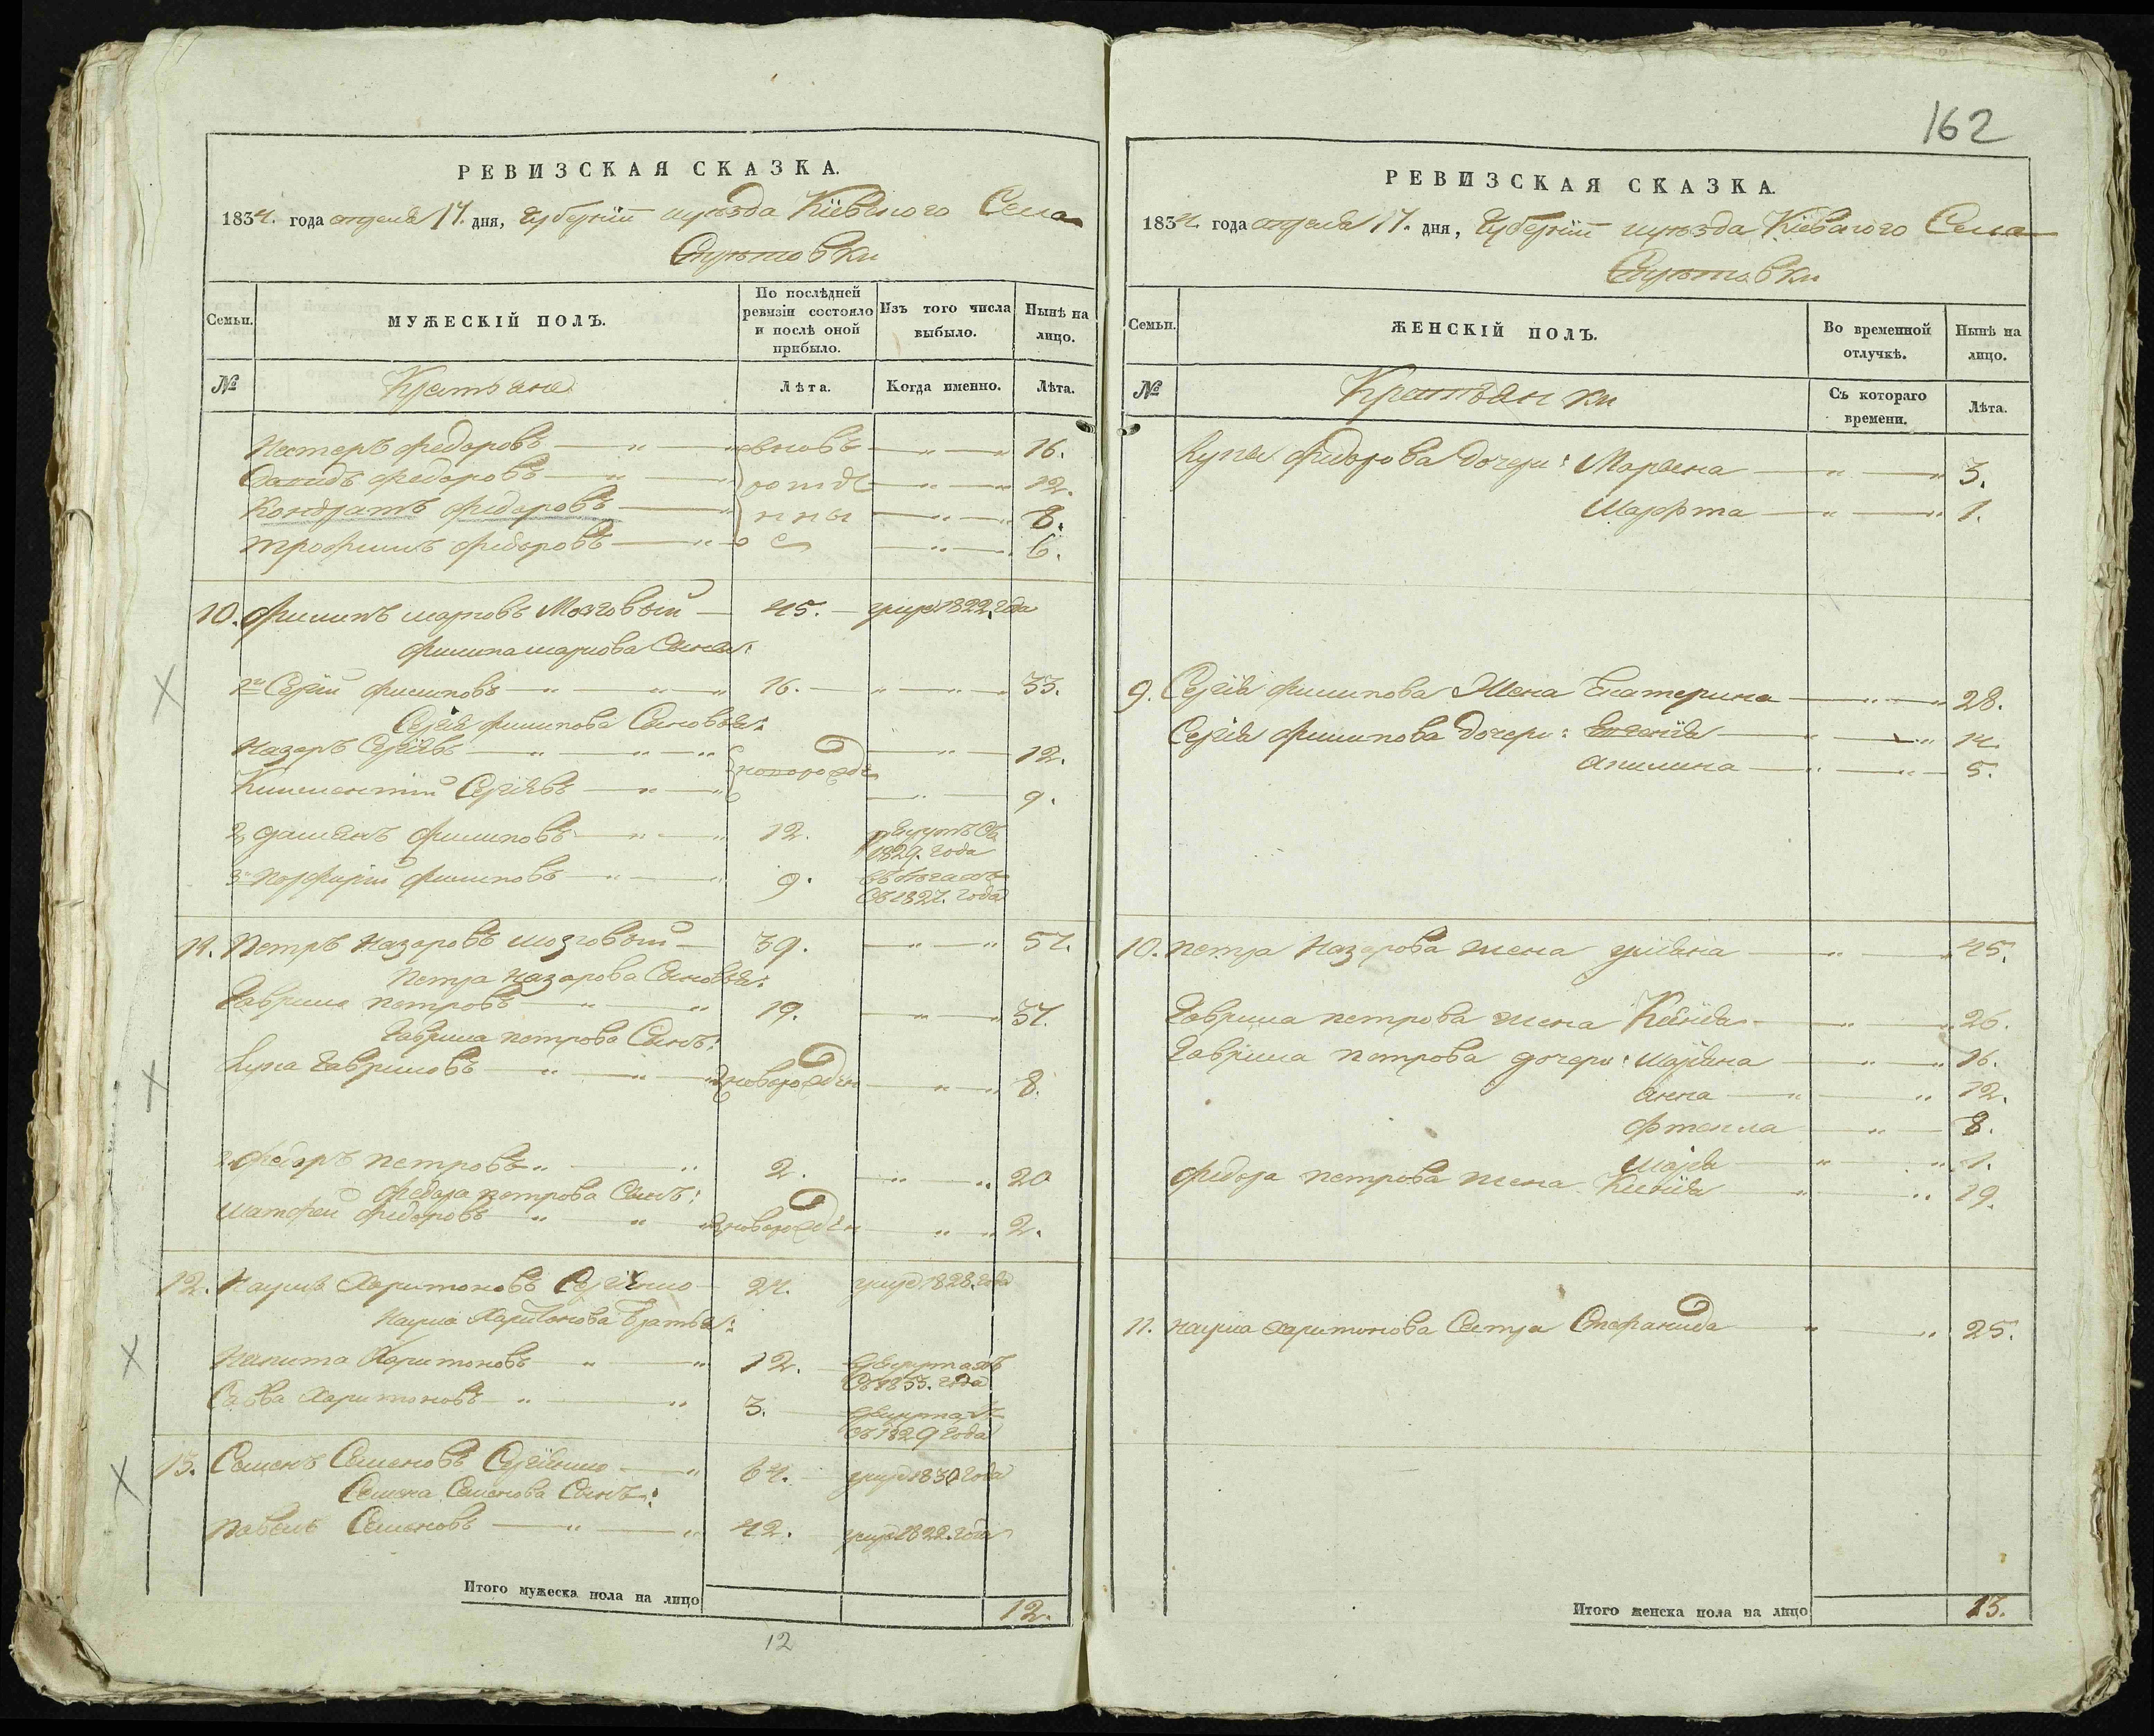 162
РЕВИЗСКАЯ СКАЗКА.
1834. года апреля 17. дня, Губернии и уезда Кіевского Села
МУЖЕСКІЙ ПОЛЪ.
Семьи.
По послѣдней ревизіи состояло и послѣ оной прибыло.
Изъ того числа выбыло.
Нынѣ на лицо.
№
Крестьяне
Лѣта.
Когда именно.
Лѣта.
Нестеръ Федоровъ — " — " вновь — " — " 16.
Давидъ Федоровъ — " — " рожде — " — " 12.
Кондратъ Федоровъ — " нны — " — " 8.
Трофимъ Федоровъ — " е — " — 6.
10. Филипъ Марковъ Мозговый — 45. — умре 1822. года
Филипа Маркова Сыны:
1й Сергій Филиповъ — " — " — " 16. — " — " — " 33.
Сергія Филипова Сыновья:
Назаръ Сергіевъ — " — " — " новорожде — " — 12.
Климентій Сергіевъ — " — " — " — 9.
2й Дамянъ Филиповъ — " — " 12. рекрутъ съ
1829. года
3й Порфирій Филиповъ — " — " 9. въ бегахъ
съ 1827. года
11. Петръ Назаровъ Мозговый — 39. — " — " 57.
Петра Назарова Сыновья:
Гаврило Петровъ — " — " 19. — " — " 37.
Гаврила Петрова Сынъ:
Лука Гавриловъ — " — " — " новорожден — " — " 8.
2й Федоръ Петровъ " — " 2. — " — " 20
Федора Петрова Сынъ:
Матфей Федоровъ — " — " новорожден — " — " 2.
12. Наумъ Харитоновъ Сергіенко — 24. умре 1828. года
Наума Харитонова Братья:
Никита Харитоновъ — " — " 12. — рекрутахъ
съ 1833. года
Савва Харитоновъ — " — " 3. — рекрутахъ
съ 1829 года
13. Семенъ Семеновъ Сергіенко — " 64. — умре 1830 года
Семена Семенова Сынъ:
Павелъ Семеновъ — " — " 42. умре 1822. года
Итого мужеска пола на лицо 12.
12
РЕВИЗСКАЯ СКАЗКА.
1834. года апреля 17. дня, Губернии и уезда Кіевского Села
Семьи.
ЖЕНСКІЙ ПОЛЪ.
Во временной отлучкѣ.
Нынѣ на лицо.
№
Крестьянки
Съ котораго времени.
Лѣта.
Луки Федорова дочери: Марьяна — " — " 3.
Марфта — " — " 1.
9. Сергія Филипова Жена Екатерина — " — " 28.
Сергія Филипова дочери: — " — " 14.
Акилина — " — " — 5.
10. Петра Назарова жена Уліана — " — " 45.
Гаврила Петрова жена — " — " 26.
Гаврила Петрова дочери: Маріана — " — " 16.
Анна — " — " 12.
Фтекла — " — 8.
Марія — " — " 1.
Федора Петрова жена — " — " 19.
11. Наума Харитонова Сестра Стефанида — " — " 25.
Итого женска пола на лицо 13.